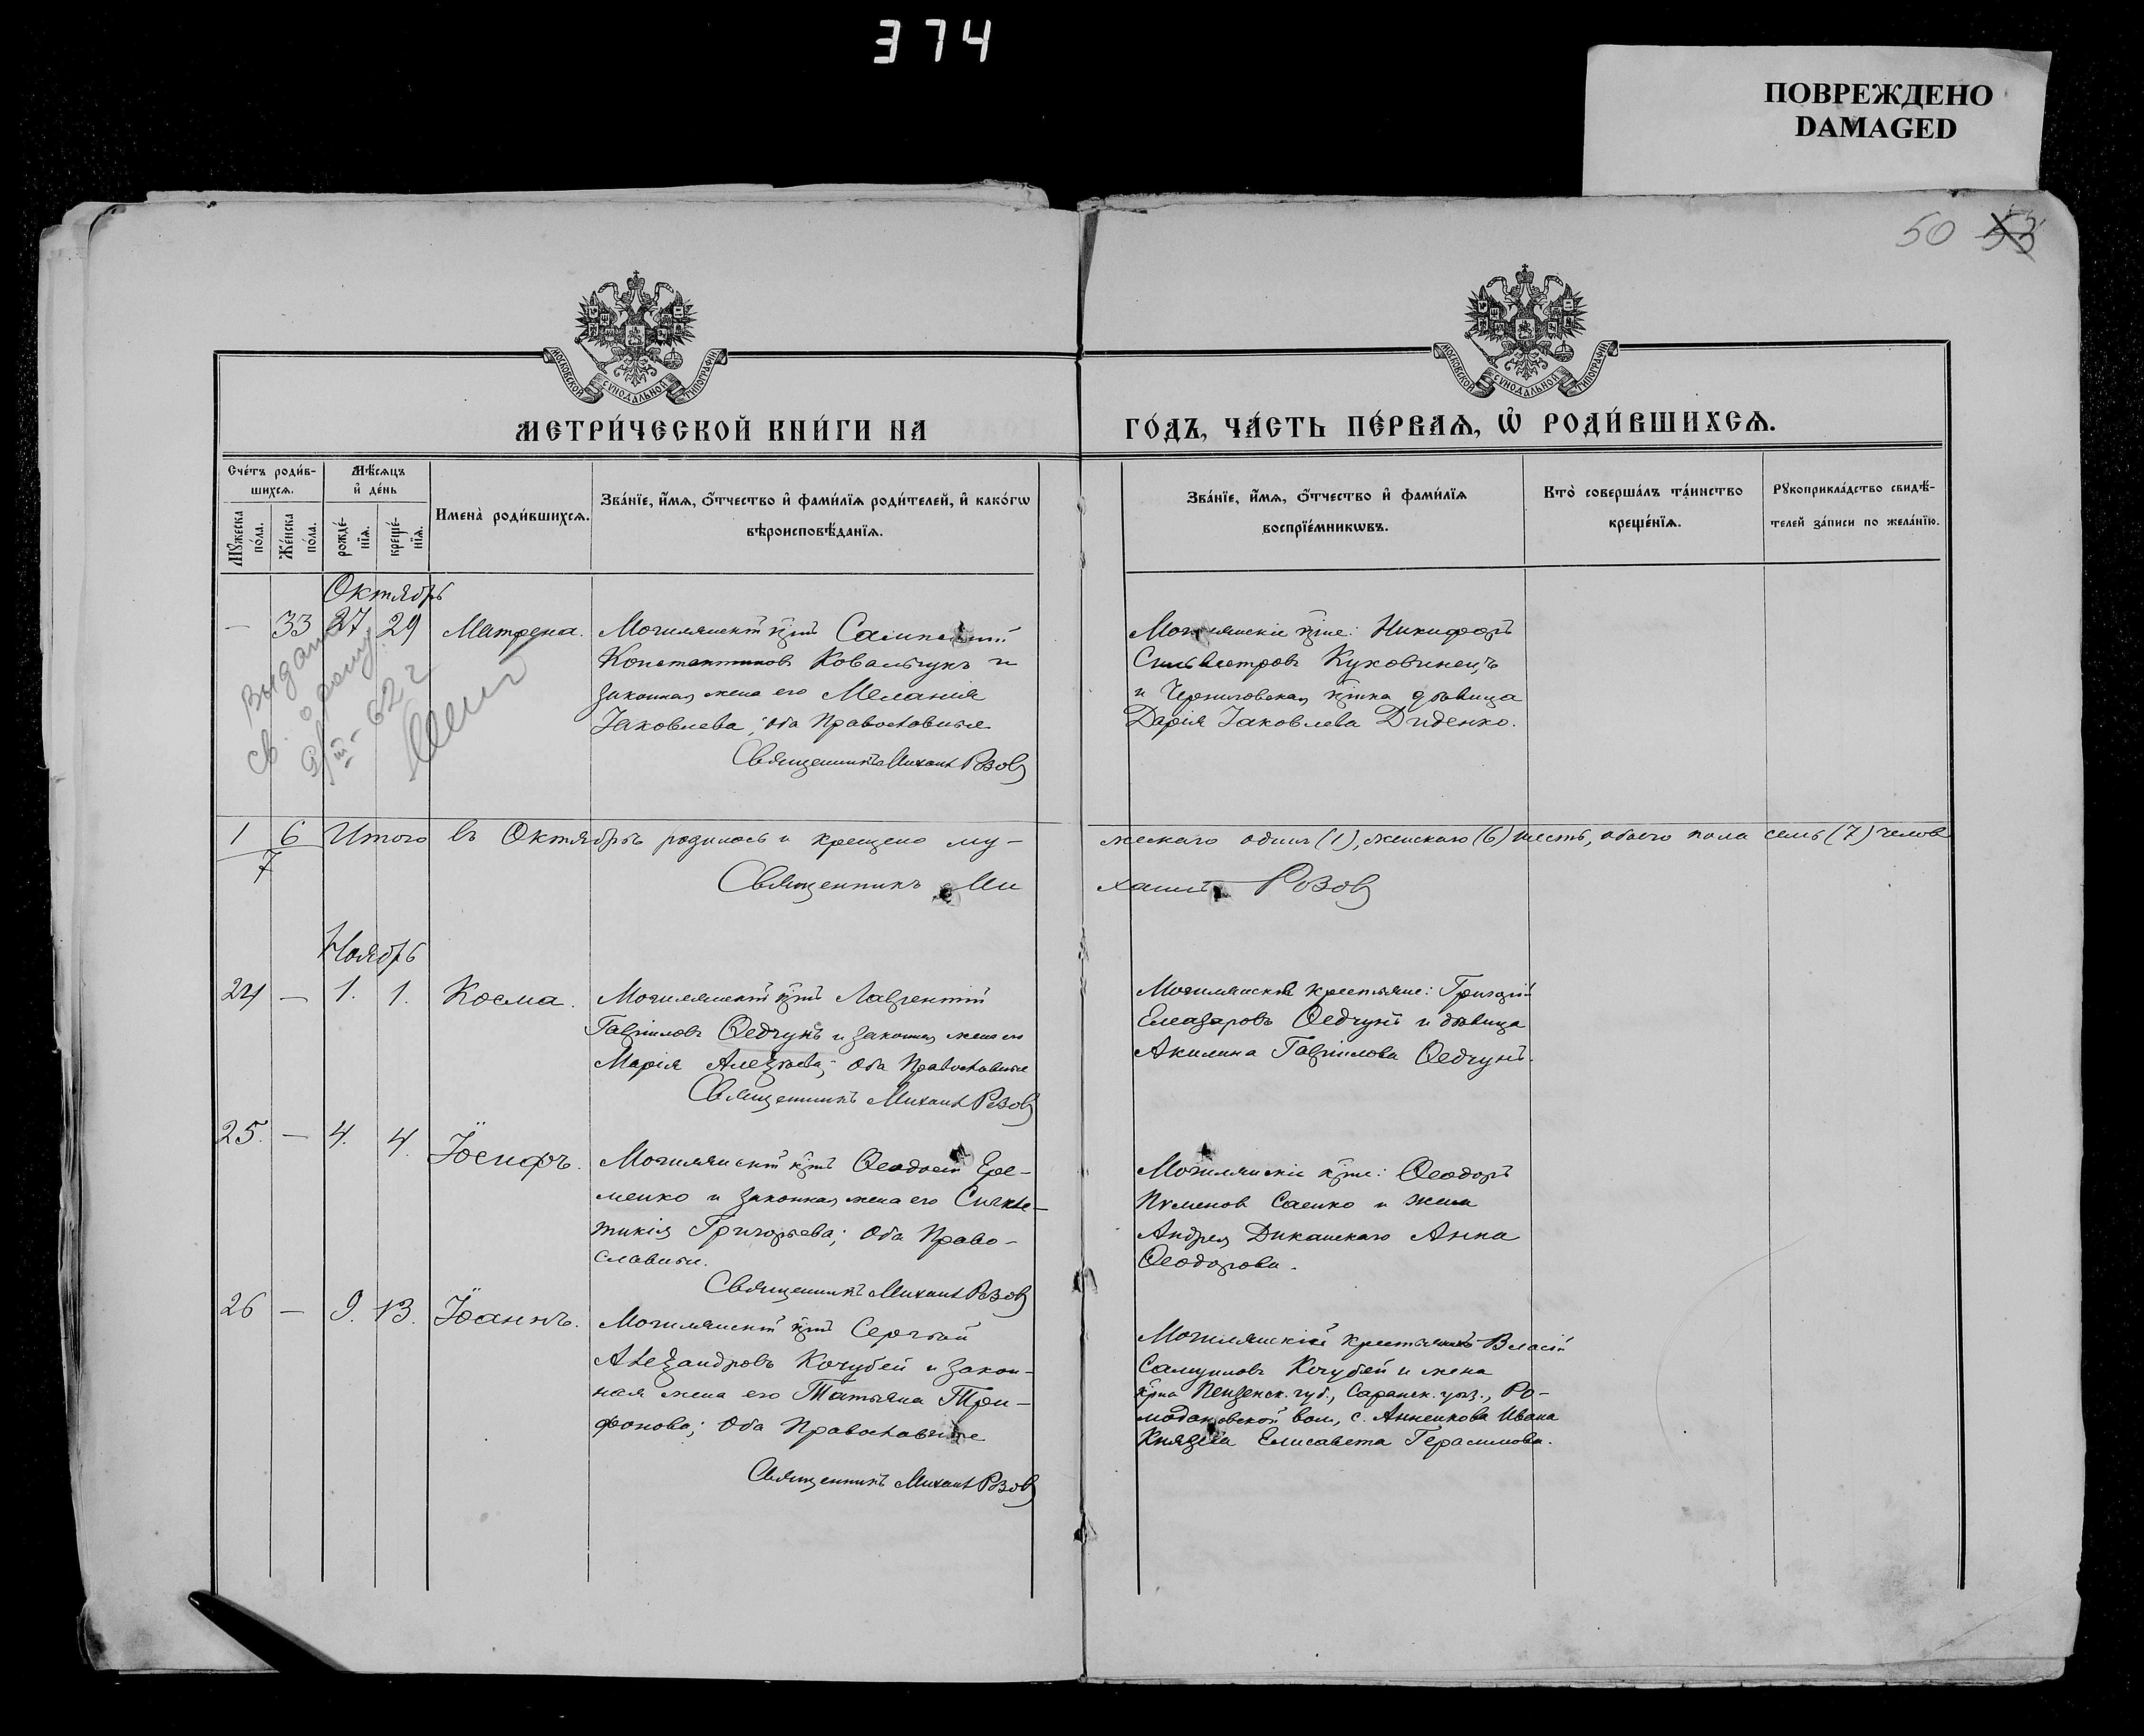 374
ПОВРЕЖДЕНО
DAMAGED
50 53
МОСКОВСКОЙ СѴНОДАЛЬНОЙ ТИПОГРАФІИ
МОСКОВСКОЙ СѴНОДАЛЬНОЙ ТИПОГРАФІИ
МЕТРИ́ЧЕСКОЙ КНИ́ГИ НА
ГО́ДЪ, ЧА́СТЬ ПЕ́РВАѦ, Ѡ РОДИ́ВШИХСѦ.
Сче́тъ роди́в-
шихсѧ.
Мѣ́сѧцъ
и҆ де́нь
Мꙋжеска по́ла.
Же́нска по́ла.
рожде́-
нїѧ.
креще́-
нїѧ.
Имена̀ роди́вшихсѧ.
Зва́нїе, и҆́мѧ, ѻ҆́тчество и҆ фами́лїѧ роди́телей, и҆ како́гѡ
вѣроисповѣ́данїѧ.
Зва́нїе, и҆́мѧ, ѻ҆́тчество и҆ фами́лїѧ
воспрїе́мникѡвъ.
Кто̀ соверша́лъ та́инство
креще́нїѧ.
Рꙋкоприкла́дство свидѣ́-
телей за́писи по жела́нїю.
Октябрь
— 33 27 29 Матрена.
Могилянскій кр҃нъ Сампсоній
Константиновъ Ковальчукъ и
законная жена его Меланія
Іаковлева; оба Православные
Священникъ Михаилъ Розовъ
Могилянскіе кр҃не: Никифоръ
Сильвестровъ Куковинецъ
и Черниговская кр҃нка дѣвица
Дарія Іаковлева Диденко.
Выдано
св. о рожд.
9/III - 62 г
1 6 Итого въ Октябрѣ родилось и крещено му-
жескаго одинъ (1), женскаго (6) шесть, обоего пола семь (7) челов
7
Священникъ Ми
хаилъ Розовъ
Ноябрь
24 — 1. 1. Косма.
Могилянскій кр҃нъ Лаврентій
Гавріиловъ Ѳедчунъ и законная жена его
Марія Алексѣева; оба Православные
Священникъ Михаилъ Розовъ
Могилянскіе крестьяне: Григорій
Елеазаровъ Ѳедчунъ и дѣвица
Акилина Гавріилова Ѳедчунъ.
25. — 4. 4. Іосифъ.
Могилянскій кр҃нъ Ѳеодосій Ере-
менко и законная жена его Синкле-
тикія Григорьева; оба Право-
славные.
Священникъ Михаилъ Розовъ
Могилянскіе кр҃не: Ѳеодоръ
Пименовъ Саенко и жена
Андрея Диканскаго Анна
Ѳеодорова.
26 — 9. 13. Іоаннъ.
Могилянскій кр҃нъ Сергѣй
Александровъ Кочубей и закон-
ная жена его Татьяна Три-
фонова; оба Православные
Священникъ Михаилъ Розовъ
Могилянскій крестьянинъ Власій
Самуиловъ Кочубей и жена
кр҃на Пензенск. губ., Саранск. уѣз., Ро-
модановской вол., с. Анненкова Ивана
Князева Елисавета Герасимова.